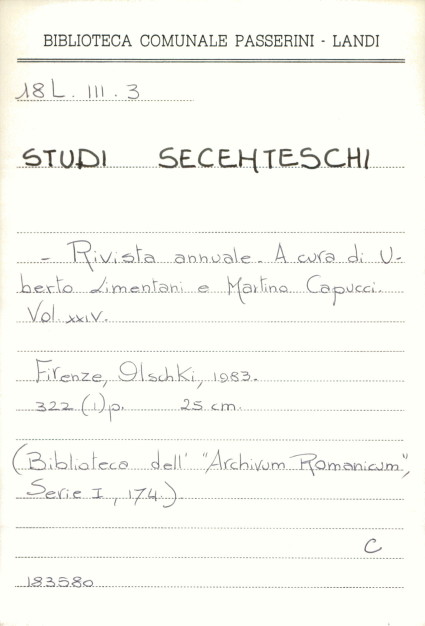 BIBLIOTECA COMUNALE PASSERINI - LANDI
18L. III. 3
STUDI SECENTESCHI
- Rivista annuale. A cura di U-
berto Limentani e Martino Capucci.
Vol. XXIV.
Firenze, Olschki, 1983.
322 (1) p. 25 cm.
(Biblioteca dell' "Archivum Romanicum",
Serie I, 174.)
C
183580